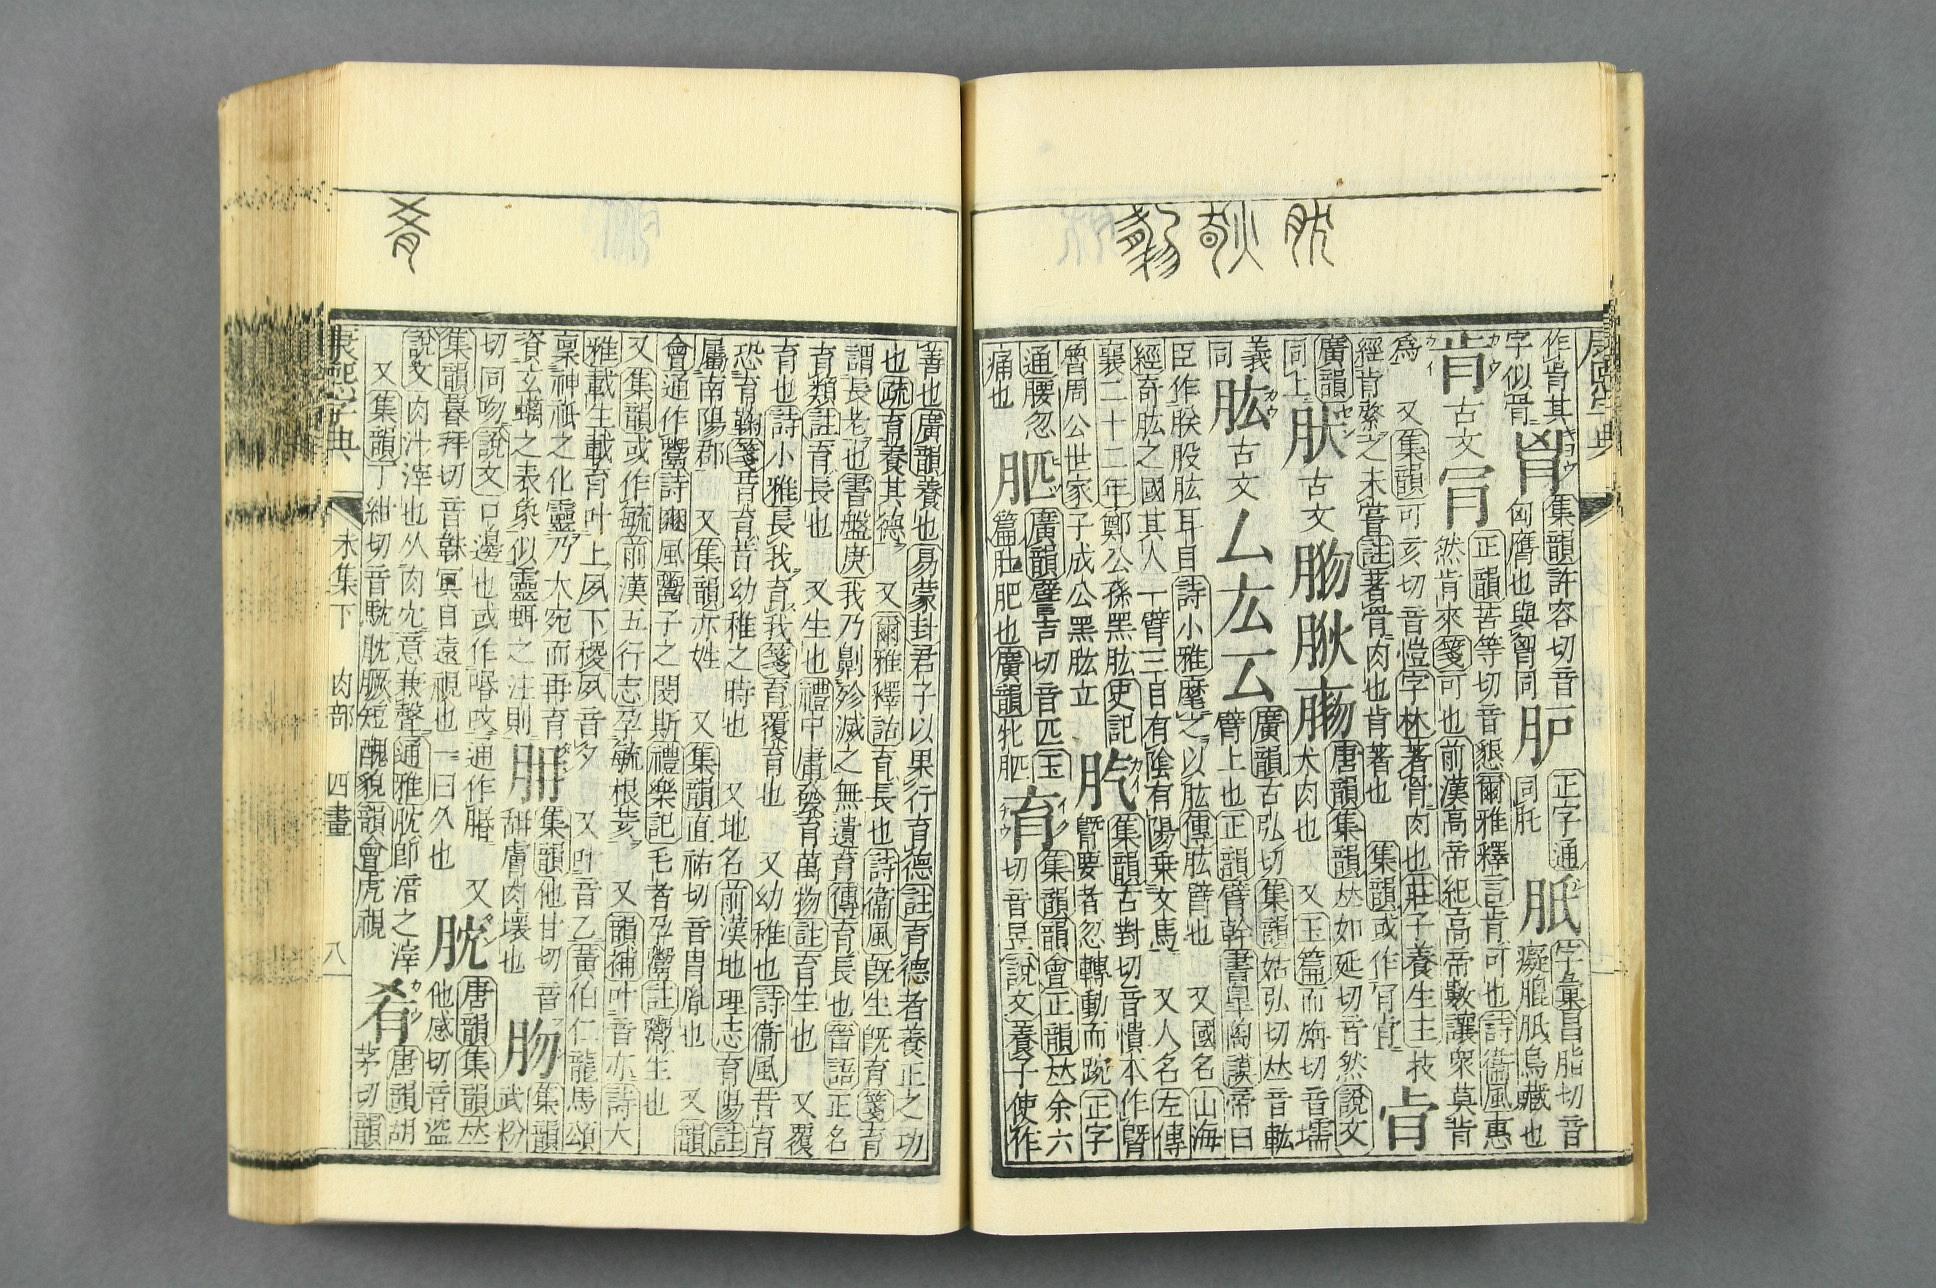 康熙字典
作肯其
集韻許容切音
字似骨
胷
匈膺也與胷同
正字通
同肫
胝
字彙昌脂切音
癡腿胝鳥藏也
肯
古文
肎
正韻苦等切音懇爾雅釋言肯可也詩衞風惠
然肯來箋可也前漢高帝紀高帝數讓衆莫肯
爲 又集韻可亥切音愷字林著骨肉也莊子養生主技
經肯綮之未嘗註著骨肉也肯著也 集韻或作肎肻
肻
廣韻
同上
肰
古文
唐韻集韻𠀤如延切音然說文
犬肉也 又玉篇而㒇切音壖
義
同
肱
古文
厶
厷
广韻古弘切集韻姑弘切𠀤音軚
臂上也正韻臂幹書臯陶謨帝曰
臣作朕股肱耳目詩小雅麾之以肱傳肱臂也 又國名山海
經奇肱之國其人一臂三目有陰有陽乗文馬 又人名左傳
襄二十二年鄭公孫黑肱史記
魯周公世家子成公黑肱立
集韻古對切音憒本作䏨
䏨要者忽轉動而踠正字
通腰忽
痛也
廣韻譬吉切音匹玉
篇䏘肥也廣韻牝䏘
育
集韻韻會正韻𠀤余六
切音昱說文養子使作
善也廣韻養也易蒙卦君子以果行育德註育德者養正之功
也疏育養其德 又爾雅釋詁育長也詩衞風旣生旣育箋育
謂長老也書盤庚我乃劓殄滅之無遺育傳育長也晉語正名
育類註育長也 又生也禮中庸發育萬物註育生也 又覆
育也詩小雅長我育我箋育覆育也 又幼稚也詩衞風昔育
恐育鞫箋昔育昔幼稚之時也 又地名前漢地理志育陽註
屬南陽郡 又集韻亦姓 又集韻直祐切音冑胤也 又韻
會通作鬻詩豳風鬻子之閔斯禮樂記毛者孕鬻註鬻生也
又集韻或作毓前漢五行志孕毓根荄 又韻補叶音亦詩大
雅載生載育叶上夙下稷夙音夕 又叶音乙黃伯仁龍馬頌
稟神祇之化靈乃大宛而再育
資玄螭之表象似靈虬之注則
集韻他甘切音
甜膚肉壞也
肳
集韻
武粉
切同吻說文口邊也或作㖧呅通作脗 又
集韻暮拜切音韎冥自遠視也一曰久也
唐韻集韻𠀤
他感切音盜
說文肉汁滓也从肉冘意兼聲通雅肬卽湆之滓
又集韻丁紺切音馾肬䐐短醜貌韻會虎視
肴
唐韻胡
茅切韻
康熙字典 未集下 肉部 四畫 八